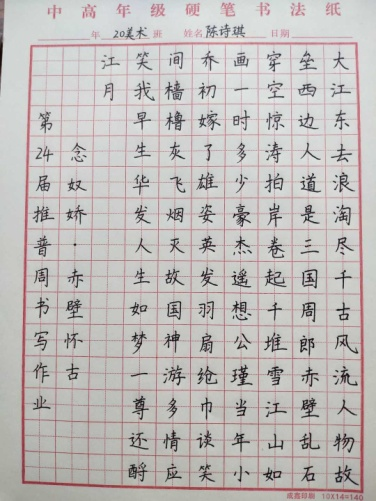 中高年级硬笔书法纸
年 20美术 班 姓名 陈诗琪 日期
大江东去浪淘尽千古风流人物故
垒西边人道是三国周郎赤壁乱石
穿空惊涛拍岸卷起千堆雪江山如
画一时多少豪杰遥想公瑾当年小
乔初嫁了雄姿英发羽扇纶巾谈笑
间樯橹灰飞烟灭故国神游多情应
笑我早生华发人生如梦一尊还酹
江月
念奴娇·赤壁怀古
第24届推普周书写作业
印刷 10X14=140